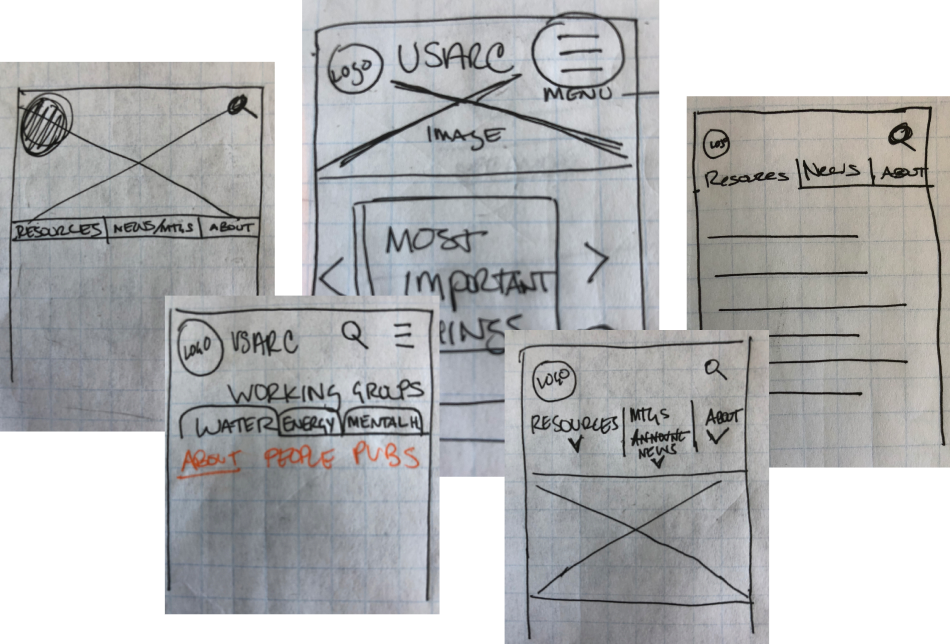 RESOURCES NEWS/MTGS ABOUT
LOGO USARC
MENU
IMAGE
MOST
IMPORTANT
INGS
LOGO
RESOURCES NEWS ABOUT
LOGO USARC
WORKING GROUPS
WATER ENERGY MENTALH
ABOUT PEOPLE PUBS
LOGO
RESOURCES MTGS ABOUT
ANNOUNC
NEWS